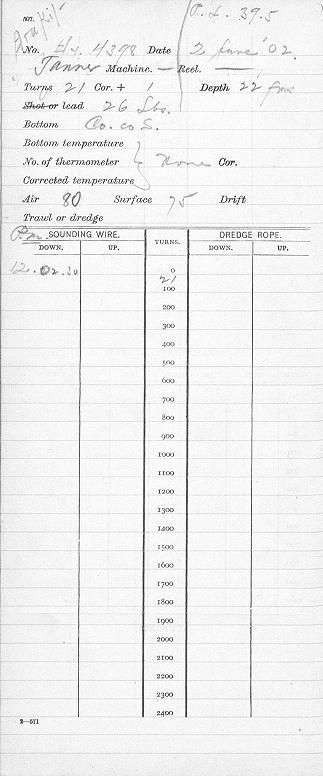 P. L. 39.5
No. Hy. 4398 Date 2 June '02.
Tanner Machine. — Reel. —
Turns 21 Cor. + 1 Depth 22 fms
Shot or lead 26 Lbs.
Bottom Co. co S.
Bottom temperature
No. of thermometer None Cor.
Corrected temperature
Air 80 Surface 75 Drift
Trawl or dredge
P.m. SOUNDING WIRE. TURNS. DREDGE ROPE.
DOWN. UP. DOWN. UP.
12.02.30 0
21
100
200
300
400
500
600
700
800
900
1000
1100
1200
1300
1400
1500
1600
1700
1800
1900
2000
2100
2200
2300
2400
2—571